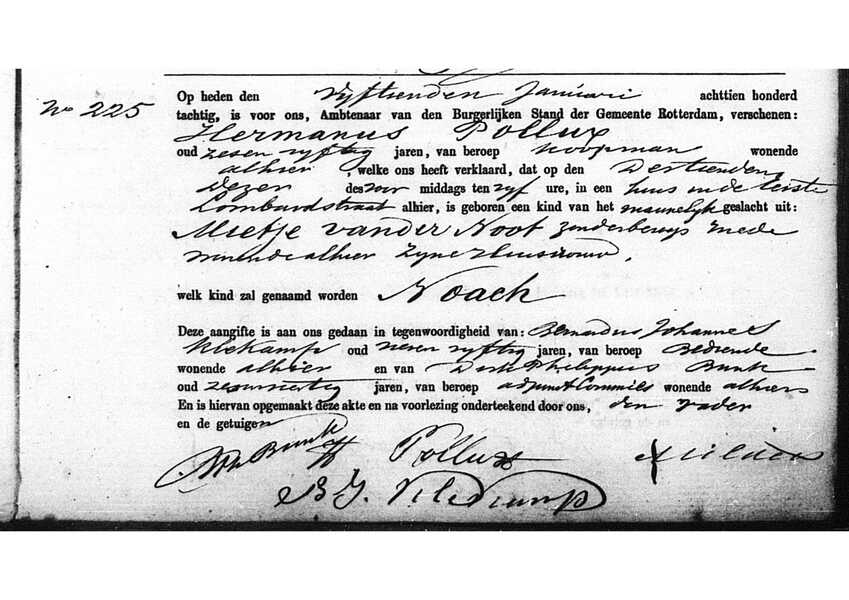 No 225
Op heden den vyftienden Januari achttien honderd
tachtig, is voor ons, Ambtenaar van den Burgerlijken Stand der Gemeente Rotterdam, verschenen:
Hermanus Pollux
oud zesenvyftig jaren, van beroep koopman wonende
alhier, welke ons heeft verklaard, dat op den dertienden
dezer des middags ten vyf ure, in een huis in de Eerste
Lombardstraat alhier, is geboren een kind van het mannelyk geslacht uit:
Mietje van der Noot zonder beroep mede
wonende alhier zyne Huisvrouw.
welk kind zal genaamd worden Noach
Deze aangifte is aan ons gedaan in tegenwoordigheid van: Bernardus Johannes
oud vyftig jaren, van beroep Bediende
wonende alhier en van Dirk Philippus Bunk
oud jaren, van beroep adjunct Commies wonende alhier
En is hiervan opgemaakt deze akte en na voorlezing onderteekend door ons, den vader
en de getuigen
Bunk H Pollux
B. J.